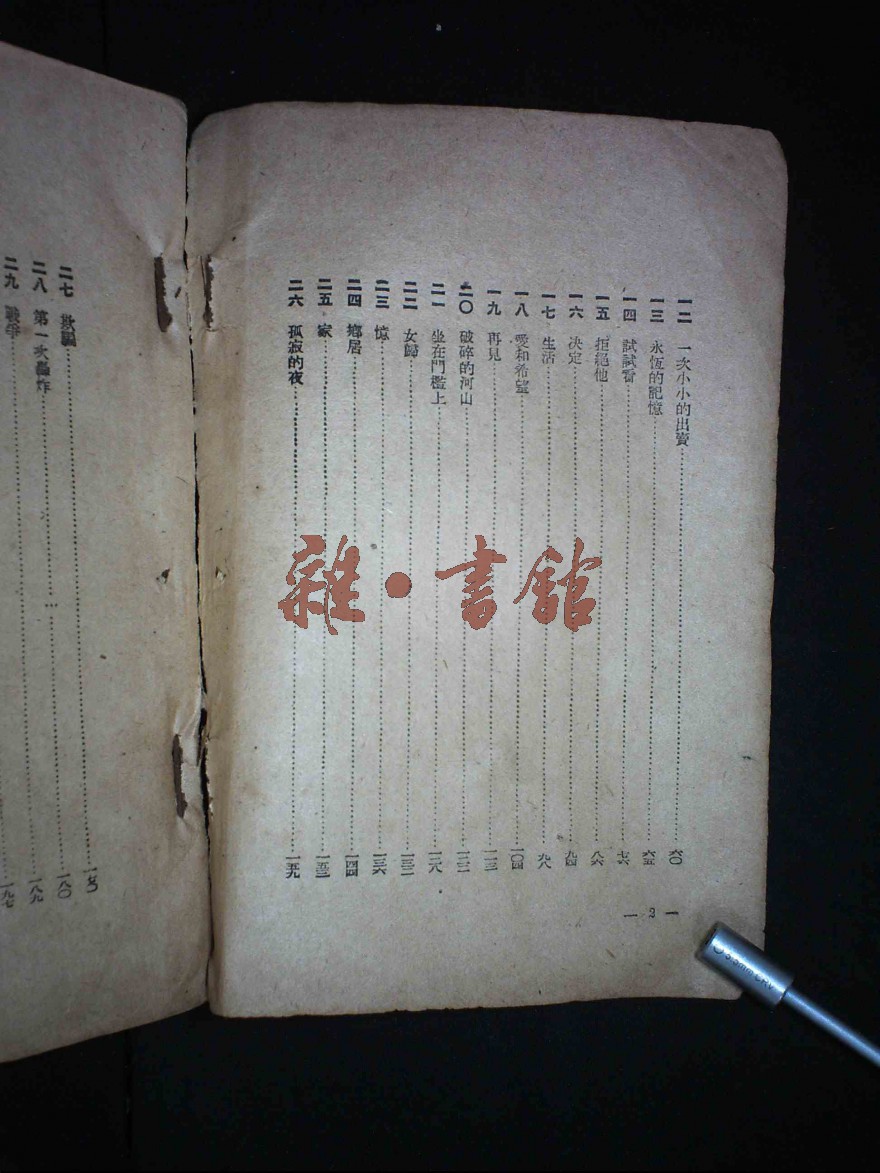 一二　一次小小的出賣……六〇
一三　永恆的記憶……六五
一四　試試看……七六
一五　拒絕他……八六
一六　決定……九四
一七　生活……九八
一八　愛和希望……一〇四
一九　再見……一一三
二〇　破碎的河山……一二二
二一　坐在門檻上……一二八
二二　女歸……一三二
二三　憶……一三六
二四　鄉居……一四四
二五　家……一五三
二六　孤寂的夜……一五九
— 2 —
二七　欺騙
二八　第一次轟炸……一八九
二九　戰爭……一九七
雜·書館
5.5mm